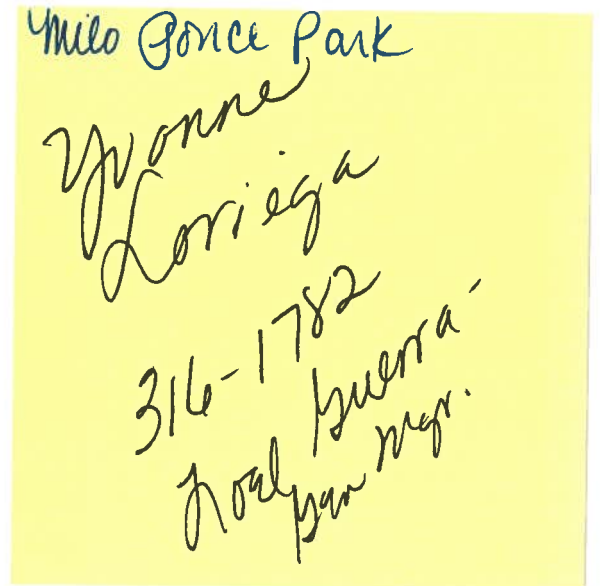 Milo Ponce Park
Yvonne
Loriega
316-1782
Noel Guerra-
Gen Mgr.